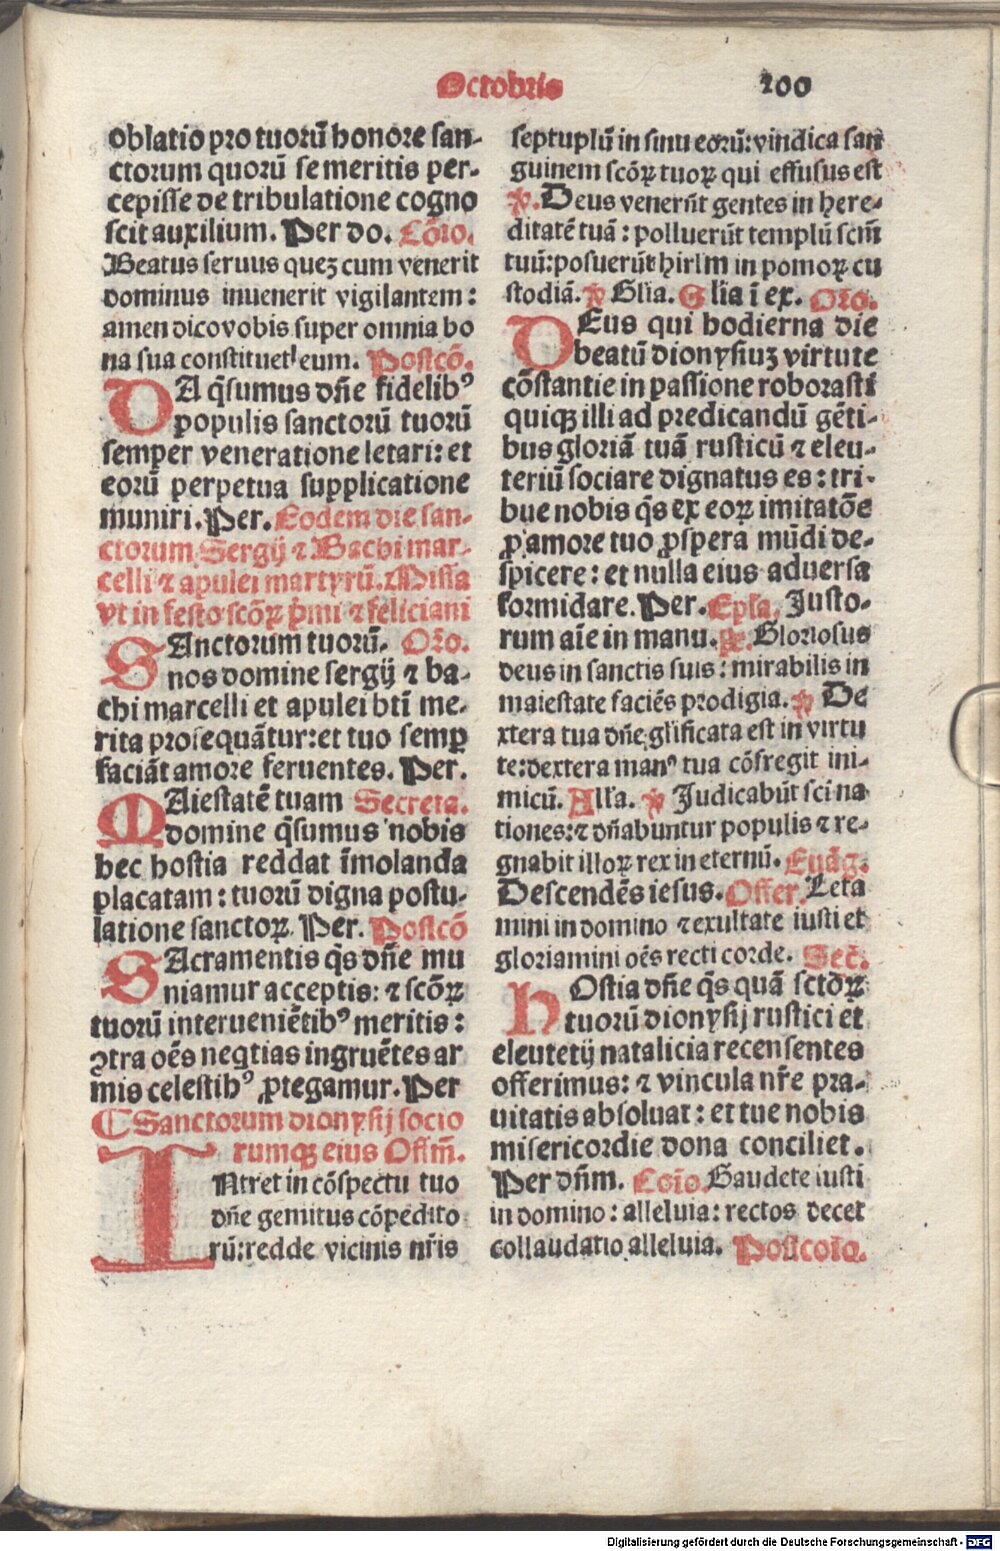 Octobris 200
oblatio pro tuoꝝ̄ honore san-
ctorum quorū se meritis per-
cepisse de tribulatione cogno
scit auxilium. Per do. Cōio.
Beatus seruus quez cum venerit
dominus inuenerit vigilantem:
amen dico vobis super omnia bo
na sua constituet eum. Postcō.
DA q̄sumus dn̄e fidelibꝰ
populis sanctorū tuorū
semper veneratione letari: et
eorū perpetua supplicatione
muniri. Per. Eodem die san-
ctorum Sergij ⁊ Bachi mar-
celli ⁊ apulei martyrū. Missa
vt in festo scōꝝ p̄mi ⁊ feliciani
SAnctorum tuorū. Orō.
nos domine sergij ⁊ ba-
chi marcelli et apulei bt̄i me-
rita prosequāntur: et tuo semꝑ
faciāt amore feruentes. Per.
MAiestatē tuam Secreta.
domine q̄sumus nobis
hec hostia reddat īmolanda
placatam: tuorū digna postu-
latione sanctoꝝ. Per. Postcō
SAcramentis q̄s dn̄e mu
niamur acceptis: ⁊ scōꝝ
tuorū interueniētibꝰ meritis:
ꝯtra oēs neqtias ingruētes ar
mis celestibꝰ ꝓtegamur. Per
¶ Sanctorum dionysij socio
rumqꝫ eius Offm̄.
INtret in cōspectu tuo
dn̄e gemitus cōpedito
rū: redde vicinis nr̄is
septuplū in sinu eorū: vindica san
guinem scōꝝ tuoꝝ qui effusus est
℣. Deus venerūt gentes in here-
ditatē tuā: polluerūt templū scm̄
tuū: posuerūt hirlm̄ in pomoꝝ cu
stodiā. ℣ Glīa. Glīa ī ex. Orō.
DEus qui hodierna die
beatū dionysiuz virtute
cōstantie in passione roborasti
quiqꝫ illi ad predicandū gēti-
bus gloriā tuā rusticū ⁊ eleu-
teriū sociare dignatus es: tri-
bue nobis q̄s ex eoꝝ imitatōe
ꝓ amore tuo ꝓspera mūdi de-
spicere: et nulla eius aduersa
formidare. Per. Epl̄a. Justo-
rum aīe in manu. ℟. Gloriosus
deus in sanctis suis: mirabilis in
maiestate faciēs prodigia. ℣ De
xtera tua dn̄e gl̄ificata est in virtu
te: dextera manꝰ tua cōfregit ini-
micū. All̄a. ℣ Judicabūt sci na
tiones: ⁊ dn̄abuntur populis ⁊ re-
gnabit illoꝝ rex in eternū. Euāg.
Descendēs iesus. Offer. Leta
mini in domino ⁊ exultate iusti et
gloriamini oēs recti corde. Secr̄.
HOstia dn̄e q̄s quā sctōꝝ
tuorū dionysij rustici et
eleutetij natalicia recensentes
offerimus: ⁊ vincula nr̄e pra-
uitatis absoluat: et tue nobis
misericordie dona conciliet.
Per dn̄m. Cōio. Gaudete iusti
in domino: alleluia: rectos decet
collaudatio alleluia. Postcōio.
Digitalisierung gefördert durch die Deutsche Forschungsgemeinschaft - DFG